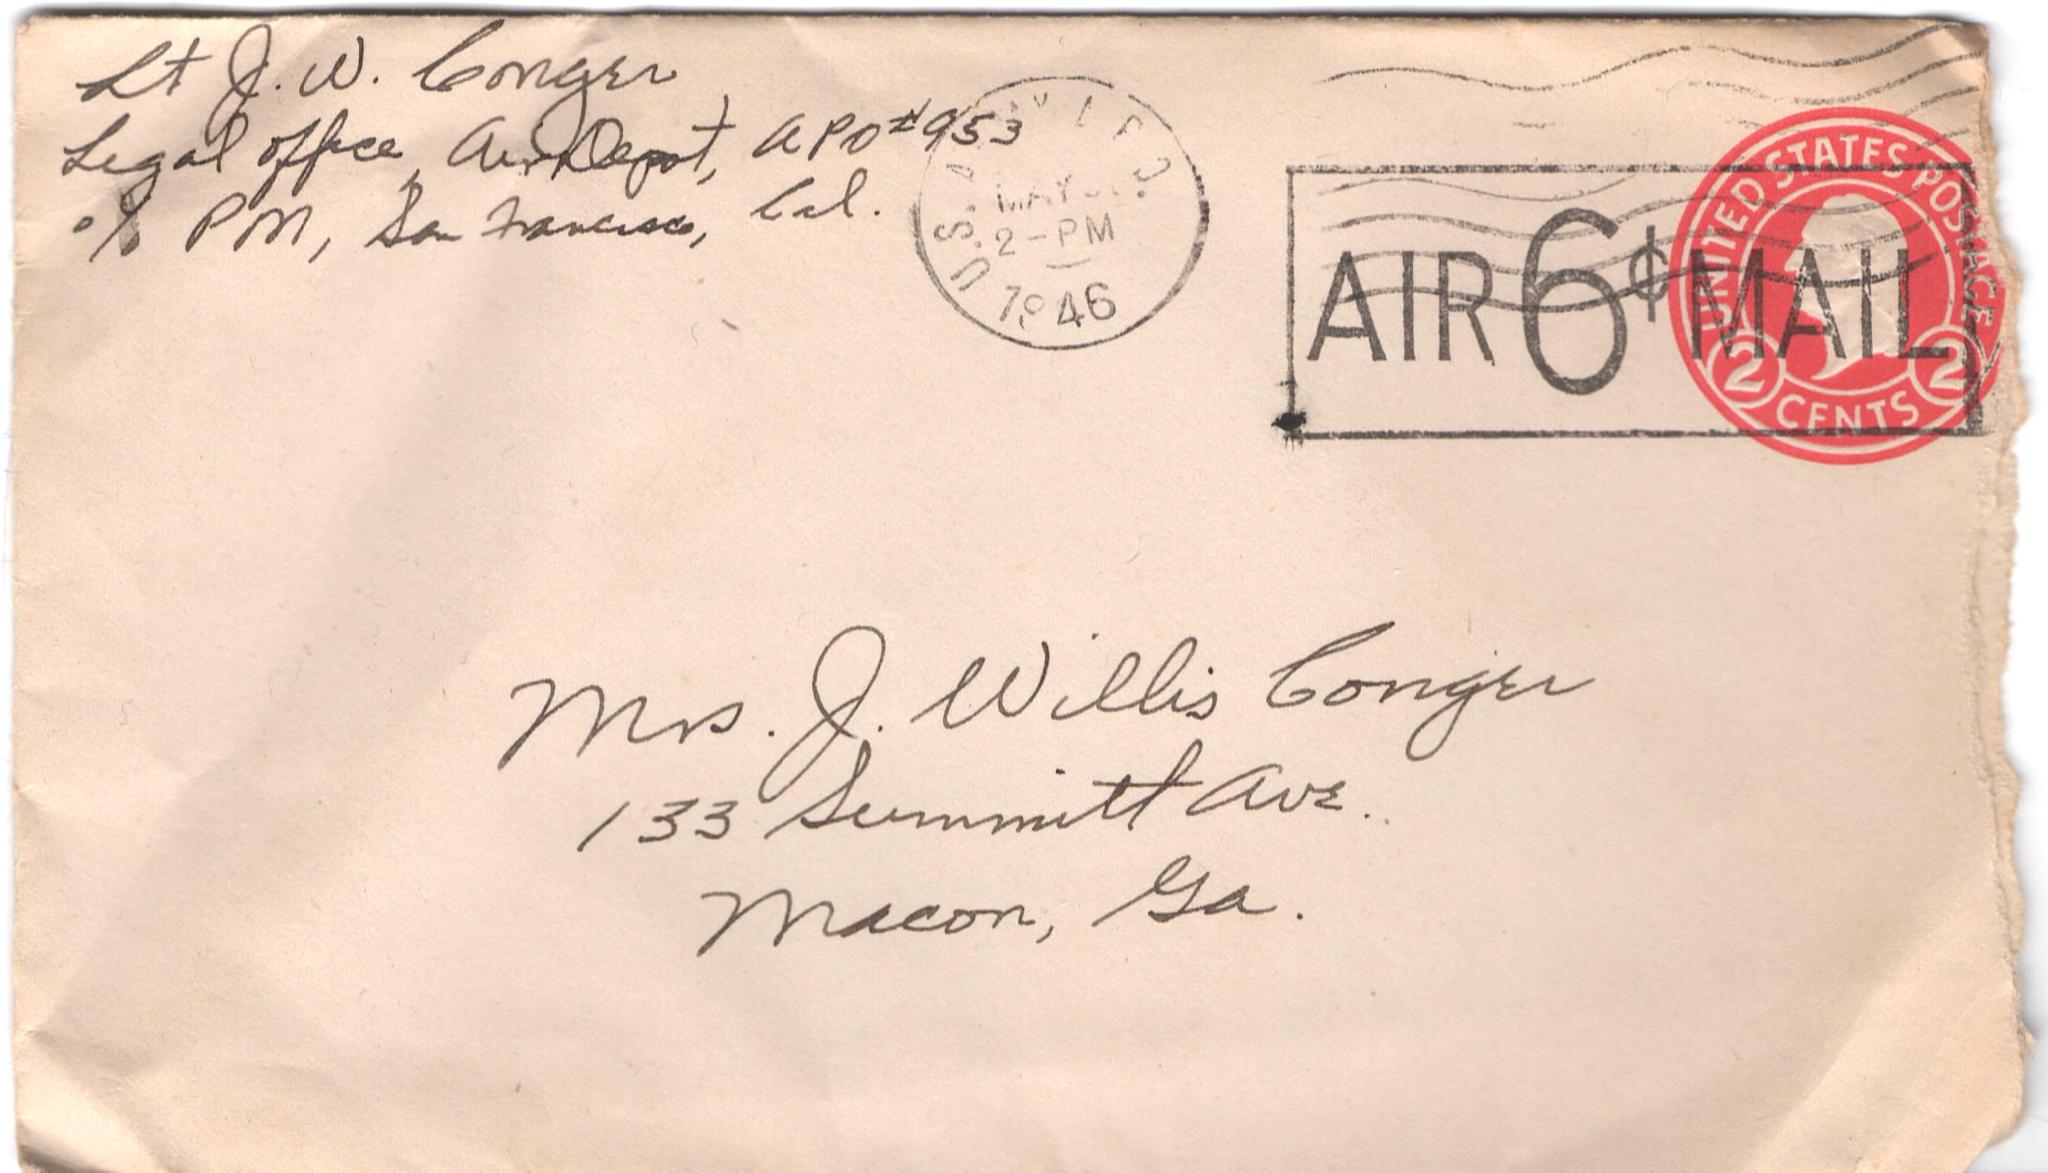 Lt J. W. Conger
Legal Office, Air Depot, APO #953
c/o PM, San Francisco, Cal.
U.S.
MAY
2-PM
1946
AIR 6¢ MAIL
UNITED STATES POSTAGE
2 CENTS 2
Mrs. J. Willis Conger
133 Summitt Ave.
Macon, Ga.